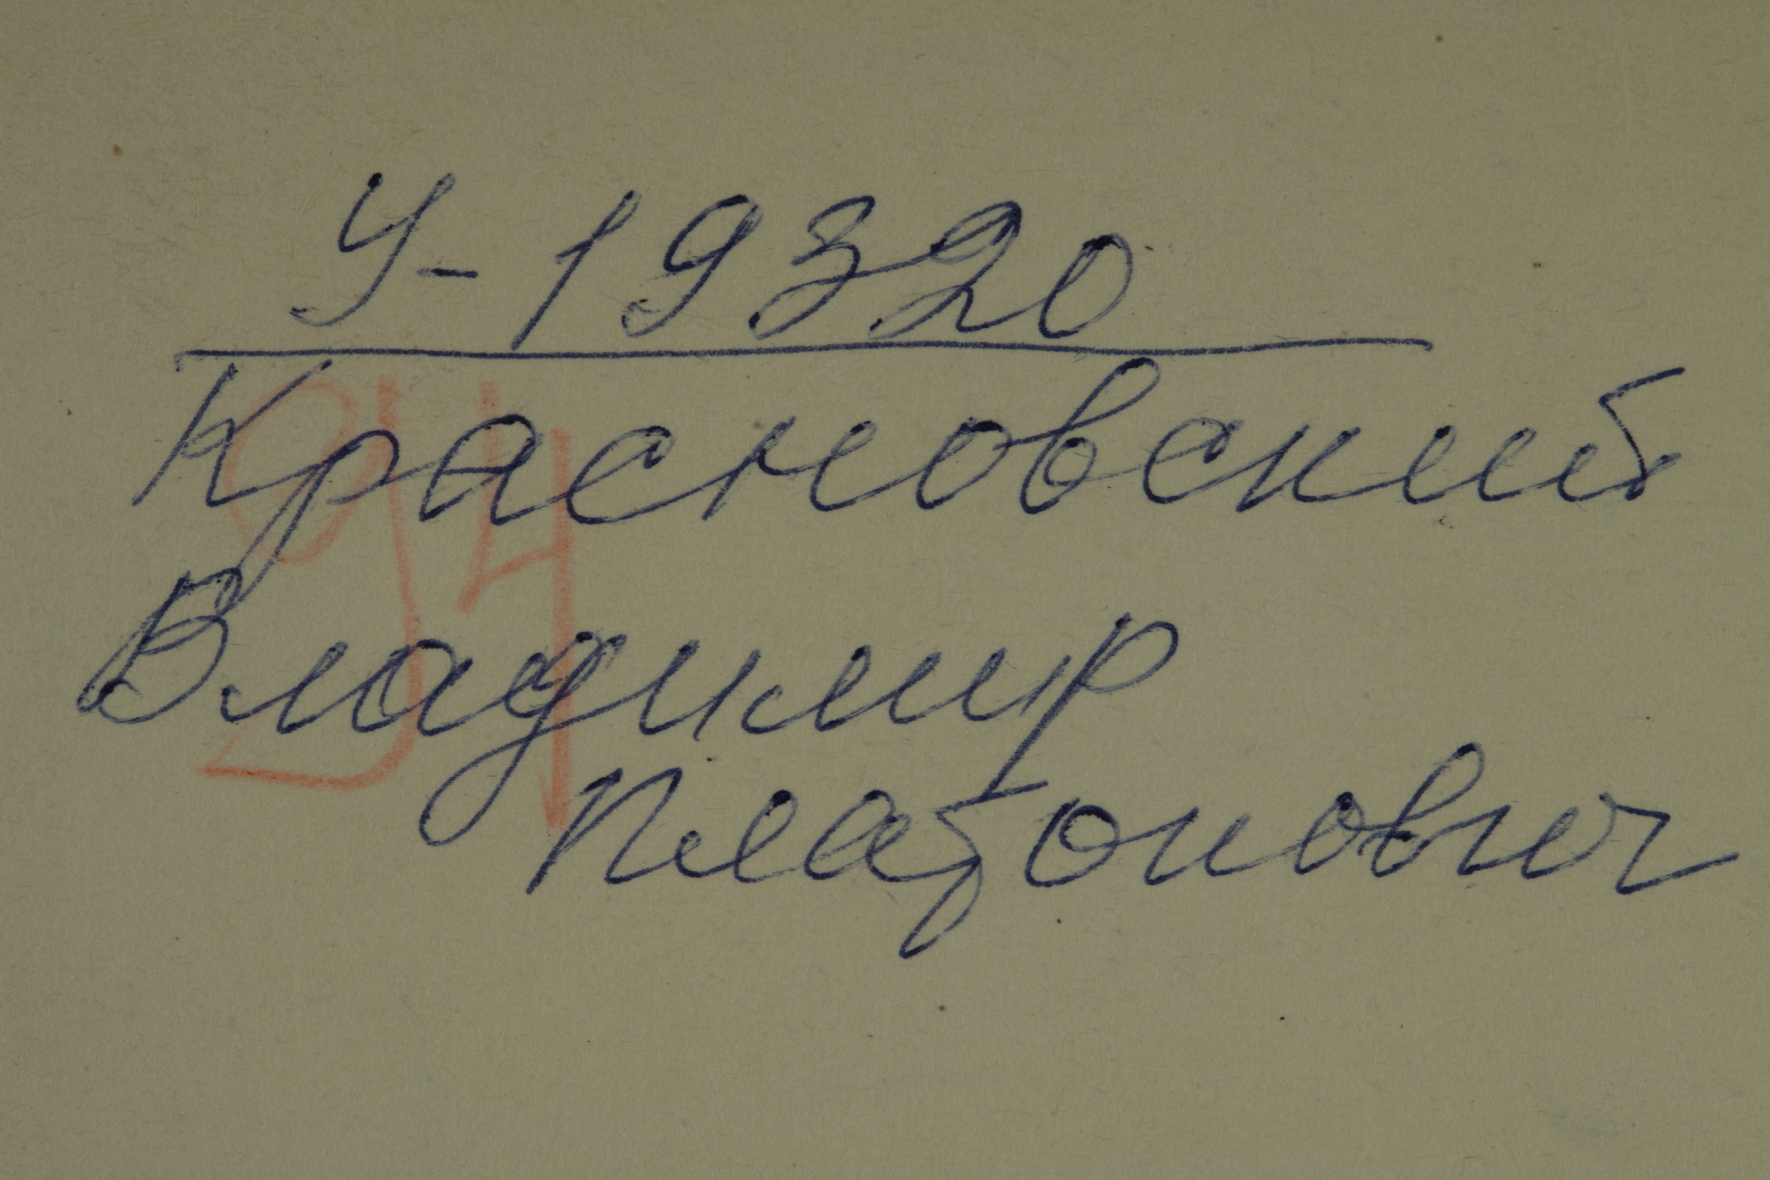 У-19320
Красновский
Владимир
Платонович
94